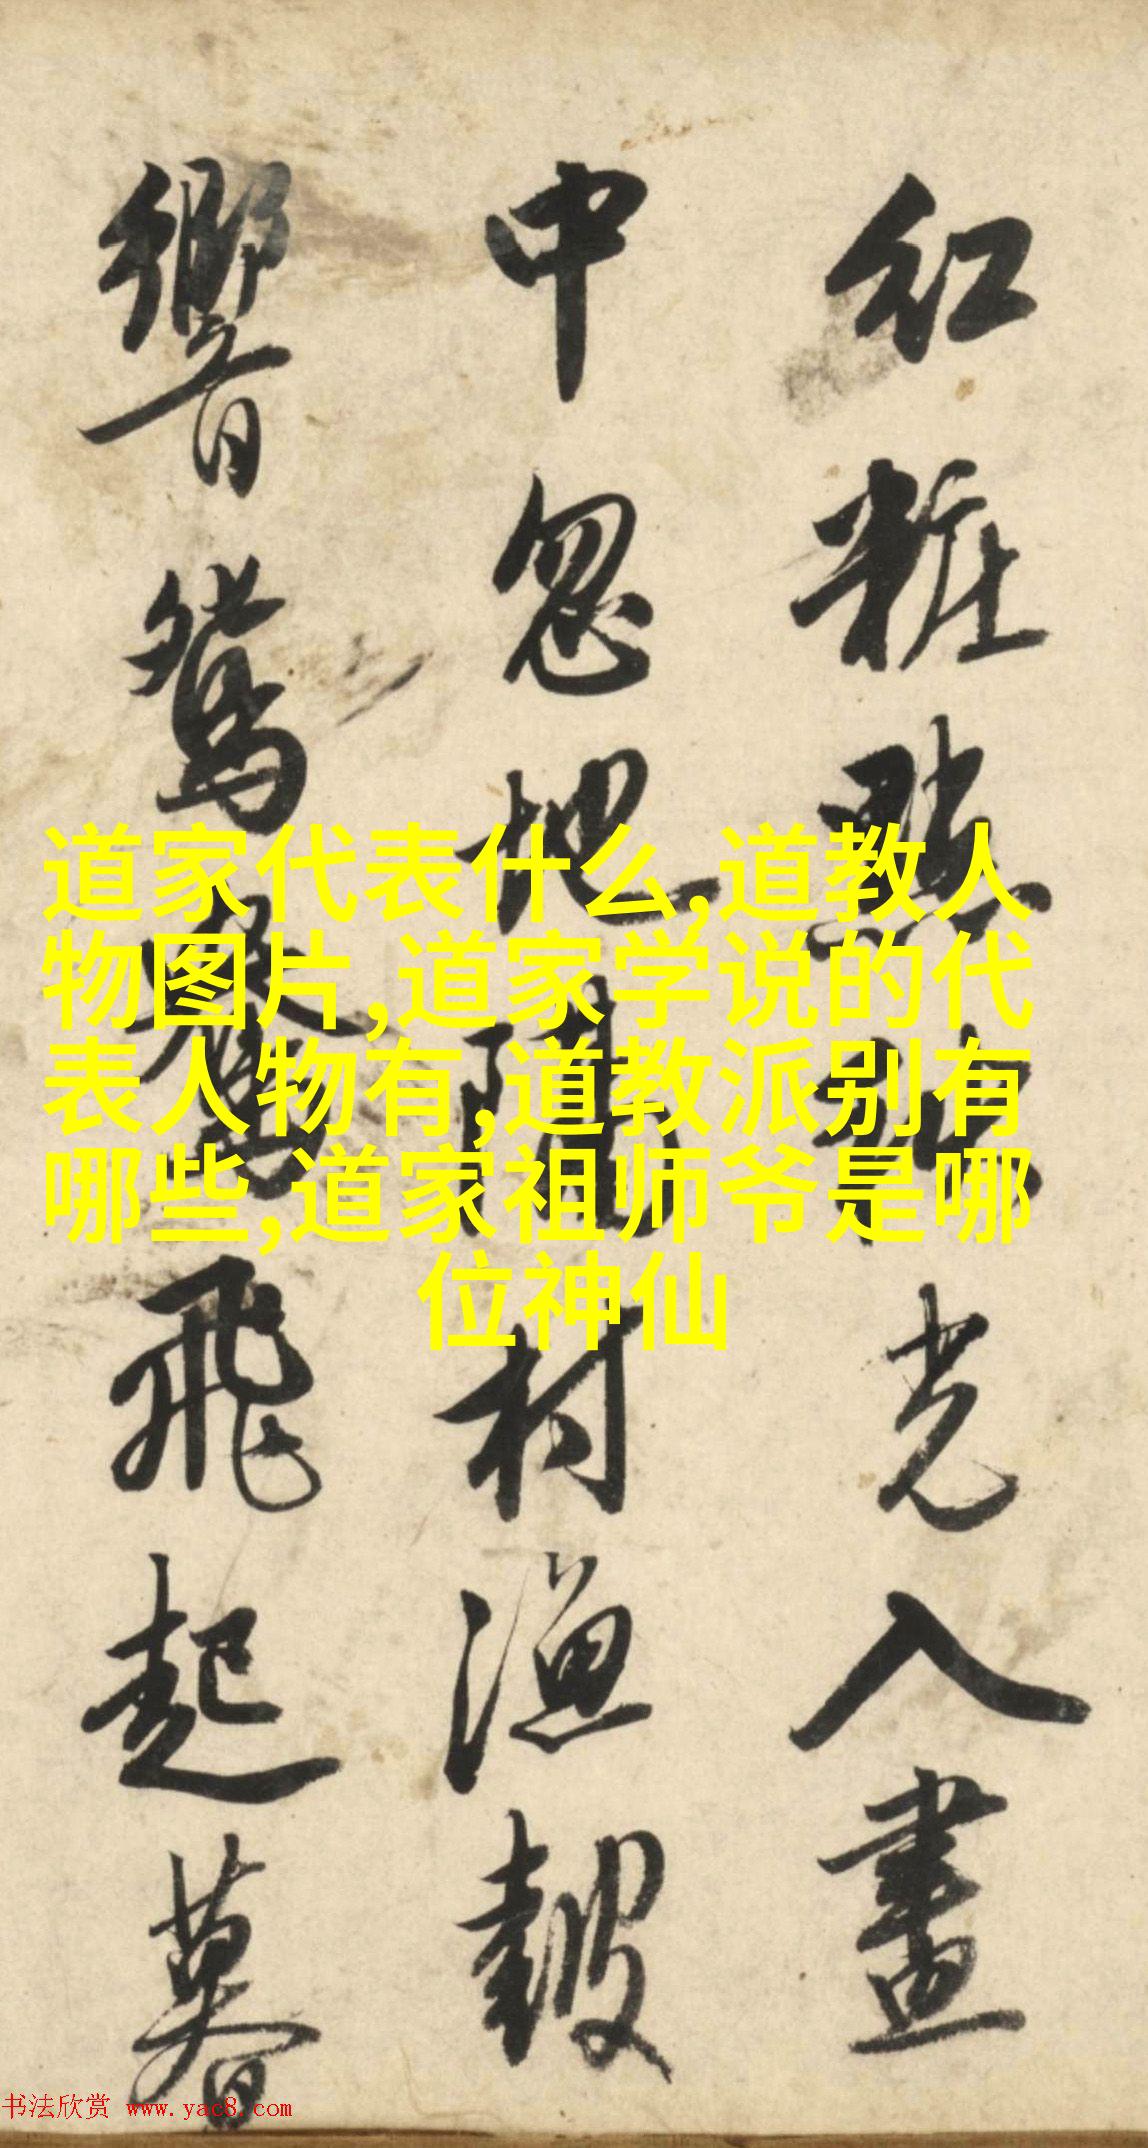 紅粧點光入畫
中忽地聞村漁鼓
響鴛鴦飛起暮
道家代表什么,道教人
物图片,道家学说的代
表人物有,道教派别有
哪些,道家祖师爷是哪
位神仙
书法欣赏 www.yac8.com